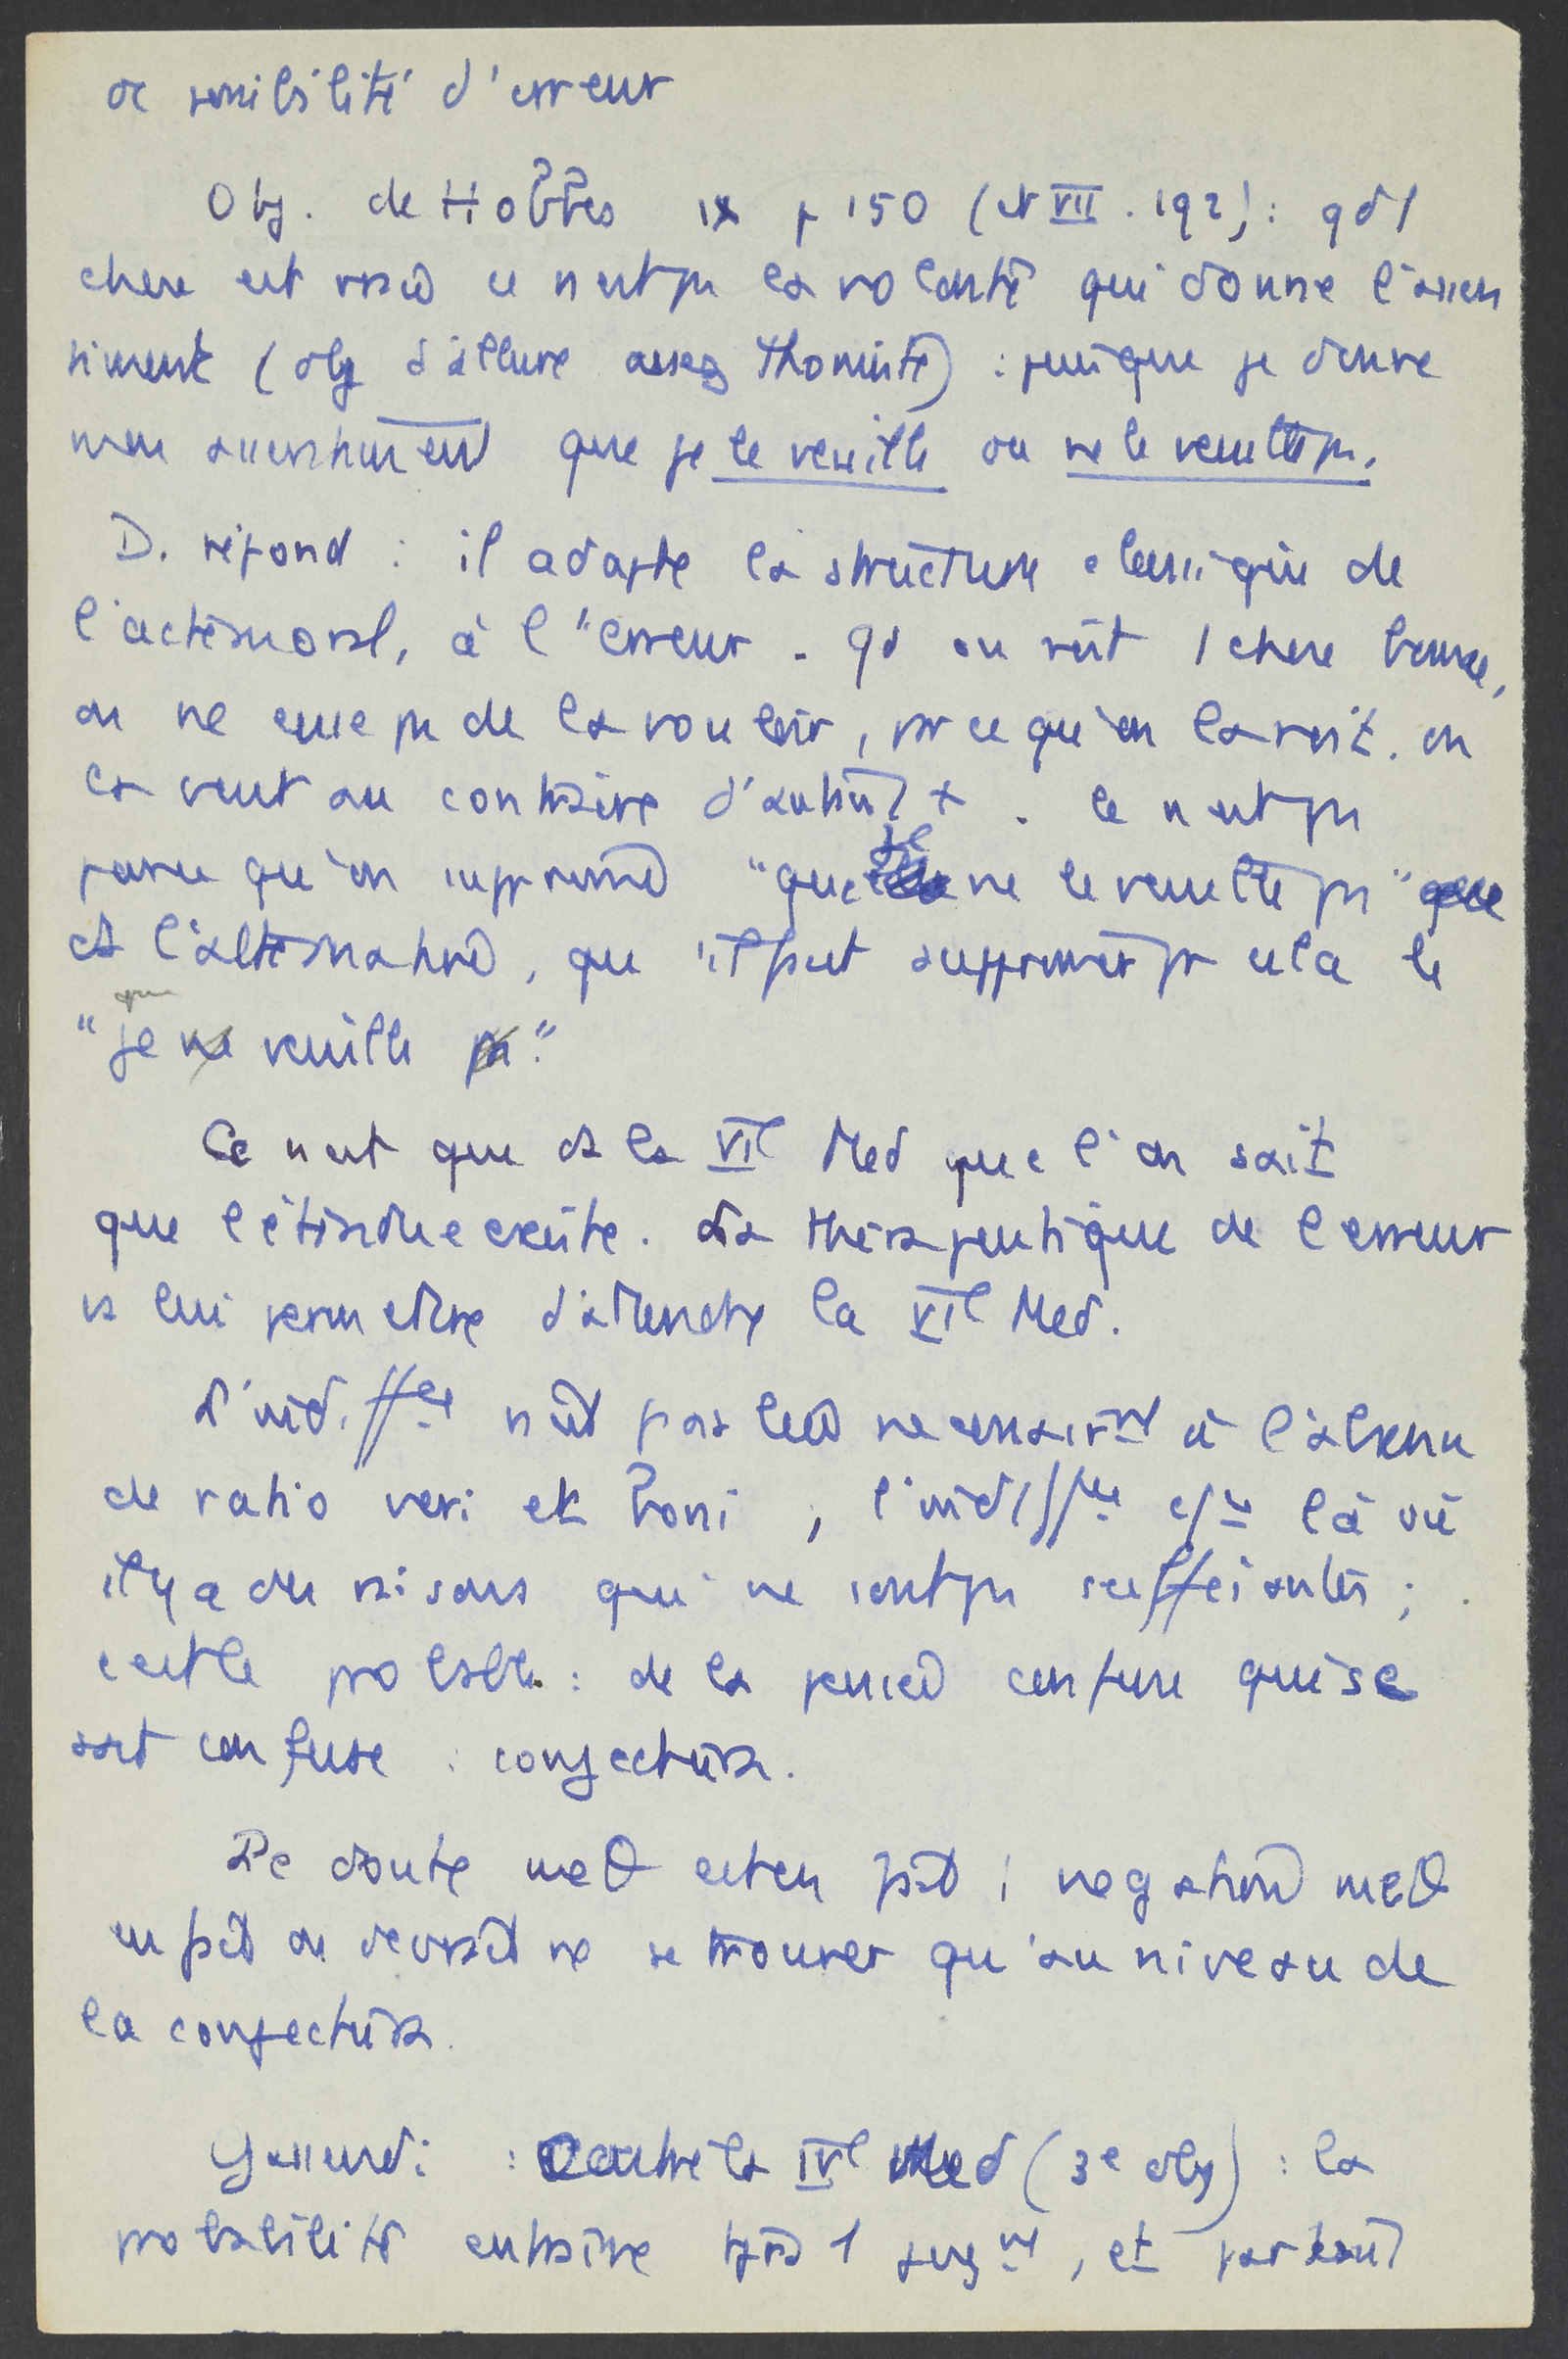 de possibilité d'erreur
Obj. de Hobbes IX p 150 (et VII. 192) : qd 1
chose est vraie ce n'est pas la volonté qui donne l'assen
timent (obj d'allure assez thomiste) : puisque je donne
mon assentiment que je le veuille ou ne le veuille pas.
D. répond : il adapte la structure classique de
l'acte moral, à l'erreur. Qd on voit 1 chose bonne,
on ne cesse pas de la vouloir, parce qu'on la voit. on
la veut au contraire d'autant +. Ce n'est pas
parce qu'on supprime "que je ne le veuille pas"
ds l'alternative, que il faut supprimer par cela le
"que je veuille"
Ce n'est que ds la VIe Med que l'on sait
que l'étendue existe. La thérapeutique de l'erreur
va lui permettre d'attendre la VIe Med.
L'indiffce n'est pas liée nécessairmt à l'absence
de ratio veri et boni, l'indiffce c'est là où
il y a des raisons qui ne sont pas suffisantes ;
c'est le probable : de la pensée confuse qui se
sait confuse : conjectura.
Le doute met. est en fait 1 négation met.
en fait on devrait ne se trouver qu'au niveau de
la conjectura.
Gassendi : Contre la IVe Med (3e obj) : la
probabilité entraine tjrs 1 jugmt, et partant